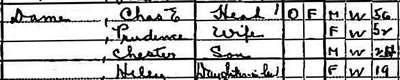 Dame, Chas E Head 1 O F M W 56
, Prudence Wife F W 52
, Chester Son M W
, Helen Daughter-in-law F W 19